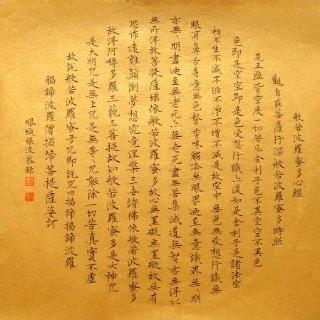 般若波羅蜜多心經
觀自在菩薩行深般若波羅蜜多時照
見五蘊皆空度一切苦厄舍利子色不異空空不異色
色即是空空即是色受想行識亦復如是舍利子是諸法空
相不生不滅不垢不淨不增不減是故空中無色無受想行識無
眼耳鼻舌身意無色聲香味觸法無眼界乃至無意識界無無明
亦無無明盡乃至無老死亦無老死盡無苦集滅道無智亦無得以
無所得故菩提薩埵依般若波羅蜜多故心無罣礙無罣礙故無有
恐怖遠離顛倒夢想究竟涅槃三世諸佛依般若波羅蜜多
故得阿耨多羅三藐三菩提故知般若波羅蜜多是大神咒
是大明咒是無上咒是無等等咒能除一切苦真實不虛
故說般若波羅蜜多咒即說咒曰揭諦揭諦波羅
揭諦波羅僧揭諦菩提薩婆訶